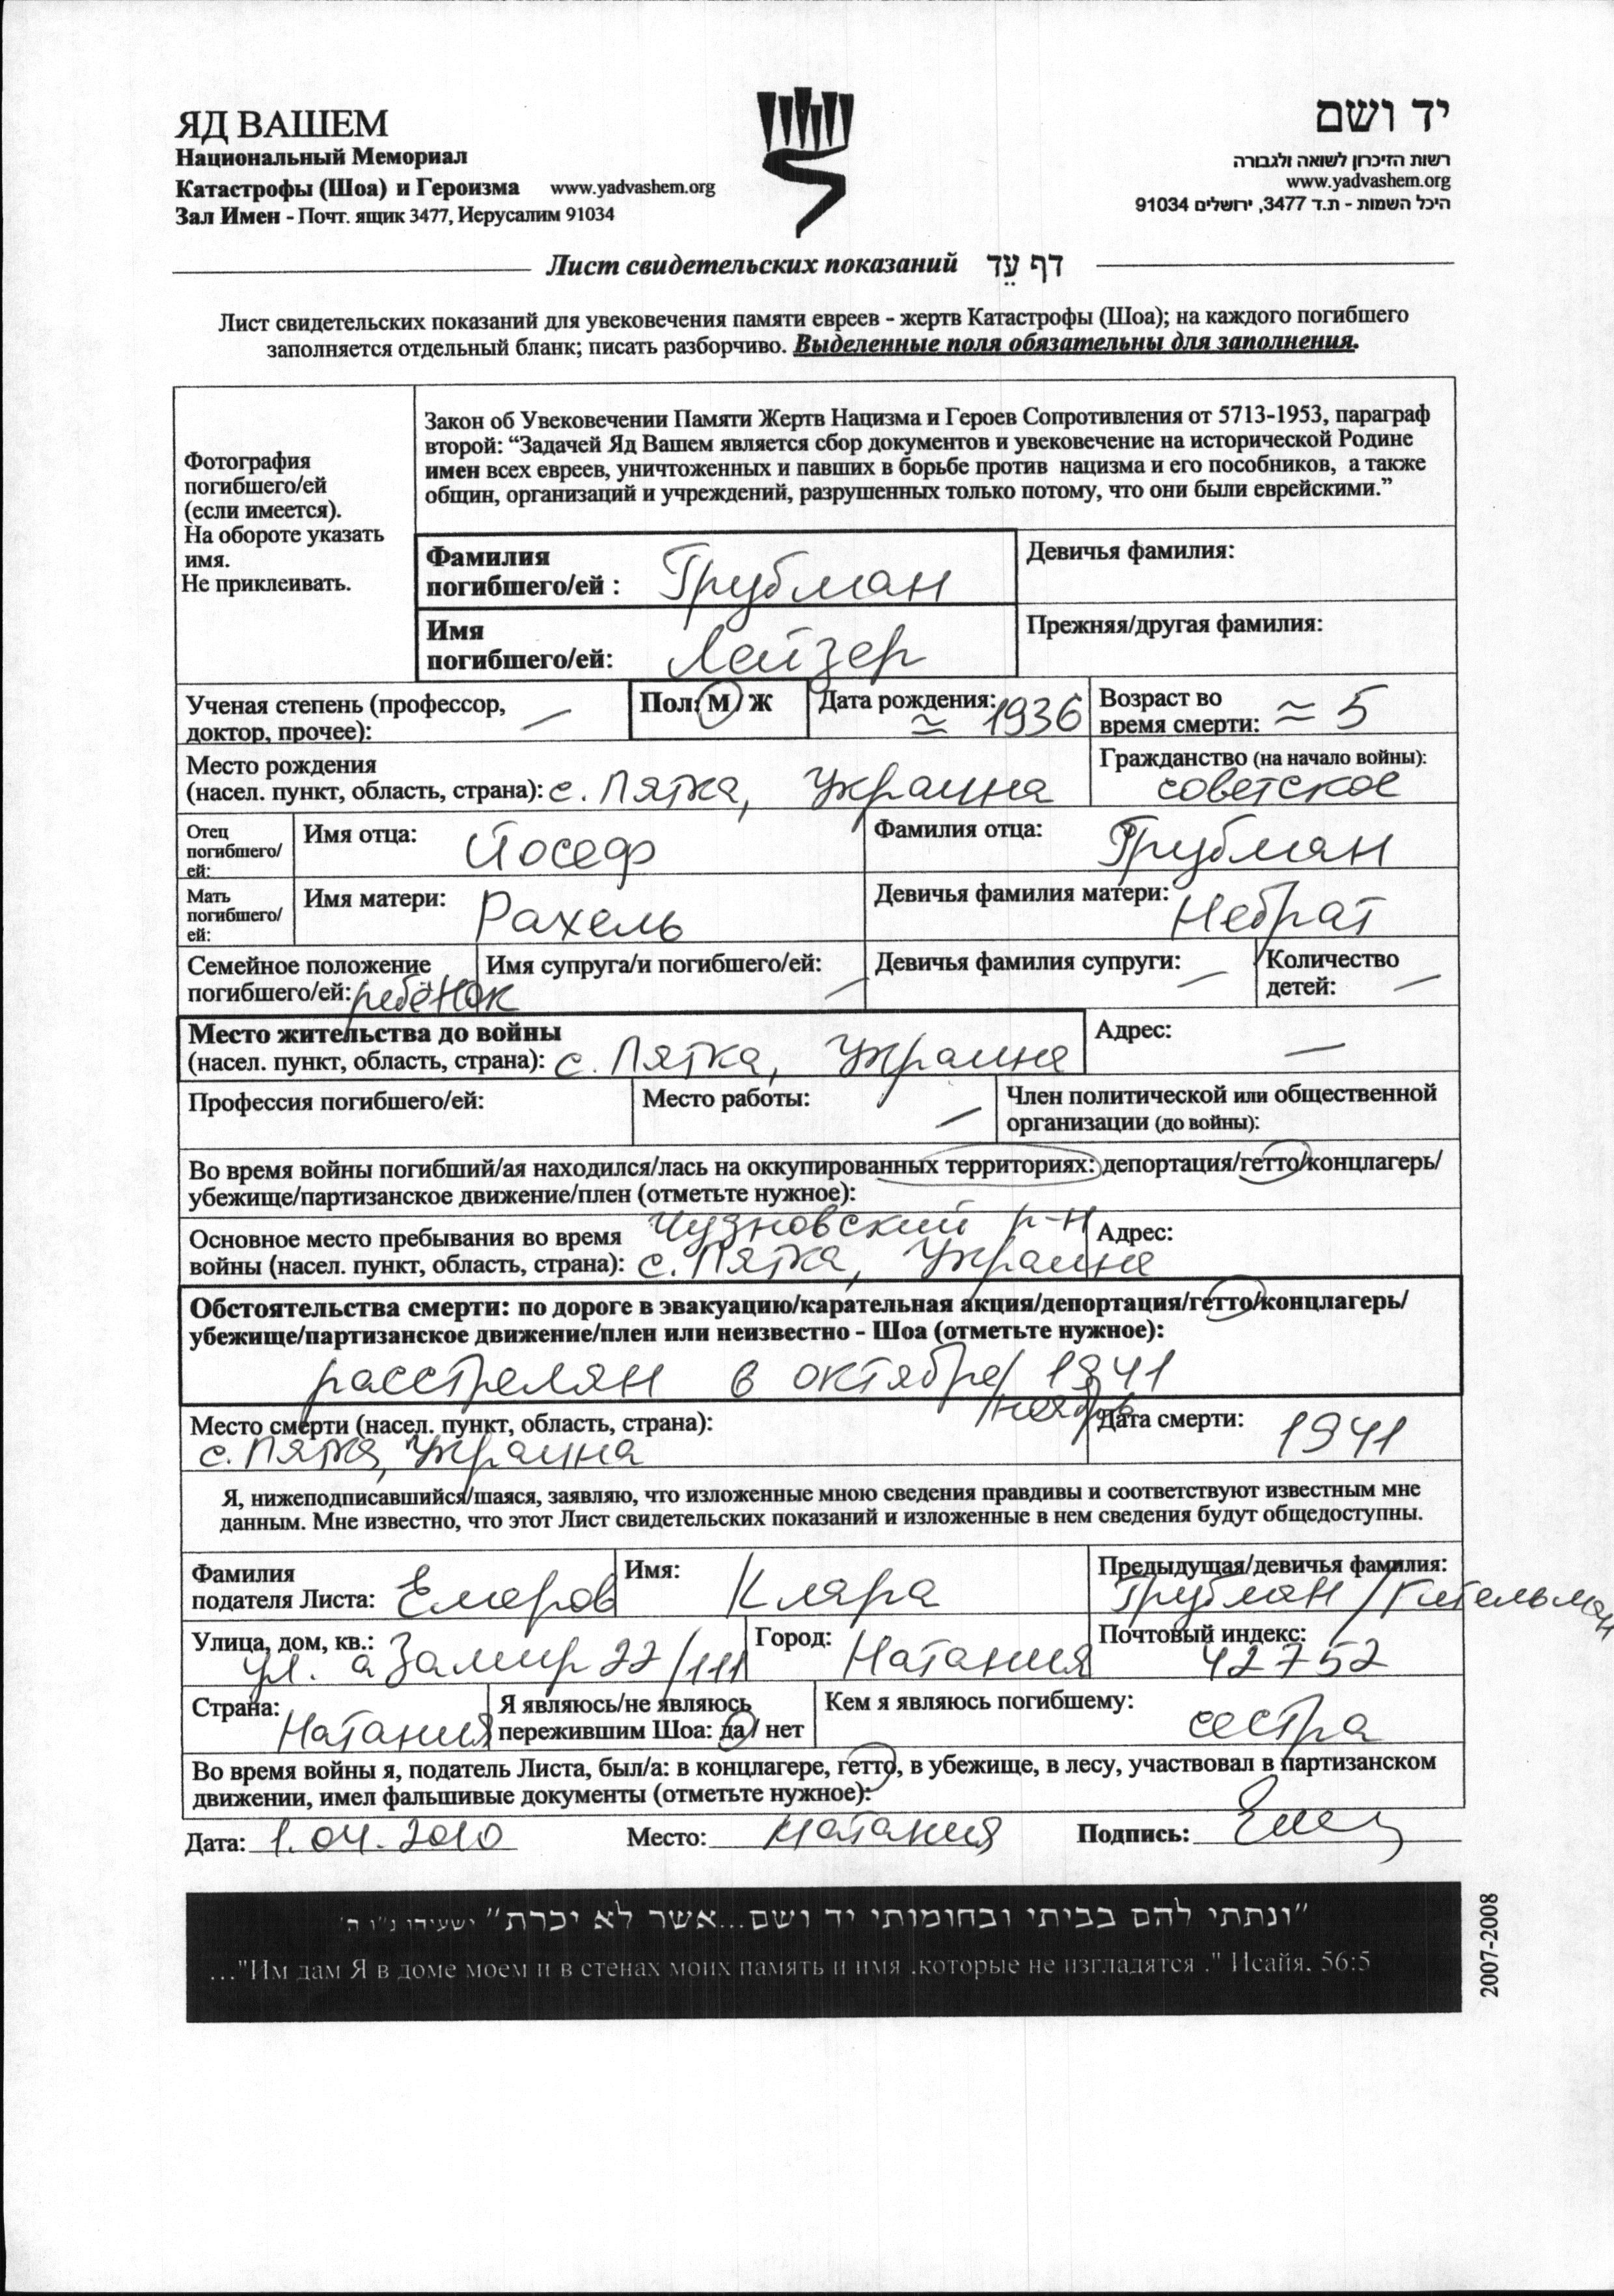 ЯД ВАШЕМ
Национальный Мемориал
Катастрофы (Шоа) и Героизма www.yadvashem.org
Зал Имен - Почт. ящик 3477, Иерусалим 91034
יד ושם
רשות הזיכרון לשואה ולגבורה
www.yadvashem.org
היכל השמות - ת.ד 3477, ירושלים 91034
Лист свидетельских показаний דף עֵד
Лист свидетельских показаний для увековечения памяти евреев - жертв Катастрофы (Шоа); на каждого погибшего
заполняется отдельный бланк; писать разборчиво. Выделенные поля обязательны для заполнения.
Фотография
погибшего/ей
(если имеется).
На обороте указать
имя.
Не приклеивать.
Закон об Увековечении Памяти Жертв Нацизма и Героев Сопротивления от 5713-1953, параграф
второй: “Задачей Яд Вашем является сбор документов и увековечение на исторической Родине
имен всех евреев, уничтоженных и павших в борьбе против нацизма и его пособников, а также
общин, организаций и учреждений, разрушенных только потому, что они были еврейскими.”
Фамилия
погибшего/ей : Трубман
Девичья фамилия:
Имя
погибшего/ей: Лейзер
Прежняя/другая фамилия:
Ученая степень (профессор,
доктор, прочее): —
Пол: М / Ж
Дата рождения:
≈ 1936
Возраст во
время смерти: ≈ 5
Место рождения
(насел. пункт, область, страна): с. Пятка, Украина
Гражданство (на начало войны):
советское
Отец
погибшего/
ей:
Имя отца: Йосеф
Фамилия отца: Трубман
Мать
погибшего/
ей:
Имя матери: Рахель
Девичья фамилия матери: Небрат
Семейное положение
погибшего/ей: ребёнок
Имя супруга/и погибшего/ей: —
Девичья фамилия супруги: —
Количество
детей: —
Место жительства до войны
(насел. пункт, область, страна): с. Пятка, Украина
Адрес: —
Профессия погибшего/ей:
Место работы: —
Член политической или общественной
организации (до войны):
Во время войны погибший/ая находился/лась на оккупированных территориях: депортация/гетто/концлагерь/
убежище/партизанское движение/плен (отметьте нужное):
Чудновский р-н
Основное место пребывания во время
войны (насел. пункт, область, страна): с. Пятка, Украина
Адрес:
Обстоятельства смерти: по дороге в эвакуацию/карательная акция/депортация/гетто/концлагерь/
убежище/партизанское движение/плен или неизвестно - Шоа (отметьте нужное):
расстрелян в октябре/ 1941
/ноябрь
Место смерти (насел. пункт, область, страна):
с. Пятка, Украина
Дата смерти: 1941
Я, нижеподписавшийся/шаяся, заявляю, что изложенные мною сведения правдивы и соответствуют известным мне
данным. Мне известно, что этот Лист свидетельских показаний и изложенные в нем сведения будут общедоступны.
Фамилия
подателя Листа: Емеров
Имя: Клара
Предыдущая/девичья фамилия:
Трубман / Кительман
Улица, дом, кв.:
ул. а Замир 22/111
Город: Натания
Почтовый индекс:
42752
Страна:
Натания
Я являюсь/не являюсь
пережившим Шоа: да / нет
Кем я являюсь погибшему:
сестра
Во время войны я, податель Листа, был/а: в концлагере, гетто, в убежище, в лесу, участвовал в партизанском
движении, имел фальшивые документы (отметьте нужное):
Дата: 1.04.2010 Место: Натания Подпись:
"ונתתי להם בביתי ובחומותי יד ושם...אשר לא יכרת" ישעיהו נ"ו ה'
..."Им дам Я в доме моем и в стенах моих память и имя ,которые не изгладятся ." Исайя. 56:5
2007-2008